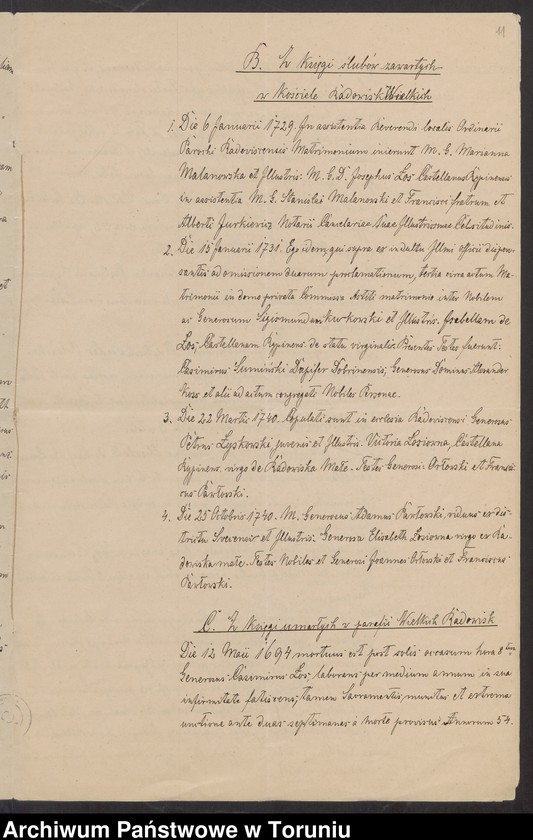 11
B. Z Księgi ślubów zawartych
w Kościele Radowisk Wielkich
1. Die 6 Januarii 1729. In assistentia Reverendi localis Ordinarii
Parochi Radoviscensis Matrimonium inierunt M. G. Marianna
Malanowska et Illustris: M. G. D. Josephus Łoś Castellanus Rypinensis
in assistentia M. G. Stanislai Malanowski et Francisci fratrum et
Alberti Jurkiewicz Notarii Cancelariae Suae Illustrissmae Celsitudinis.
2. Die 15 Januarii 1731. Ego idem, qui supra ex indultu Illmi officii dispen-
santis ad omissionem duarum proclamationum, tertia circa actum Ma-
trimonii in domo privata Commissa Astiti matrimonio inter Nobilem
ac Generosum Sigismundum Kurkowski et Illustris. Isabellam de
Łoś, Castellanam Rypinens. de statu virginali. Presentes Testes fuerunt:
Casimirus Sumiński Dapifer Dobrinensis, Generosus Dominus Alexander
et alii ad actum congregati Nobiles Personae.
3. Die 22 Martii 1740. Copulati sunt in ecclesia Radoviscensi Generosus
Petrus Łyskowski juvenis et Illustris. Victoria Łosiowna, Castellana
Rypinens. virgo de Radowiska Małe. Testes Generosi: Orłowski et Francis-
cus Pawłowski.
4. Die 25 Octobris 1740. M. Generosus Adamus Pawłowski, viduus ex dis-
trictu et Illustris: Generosa Elisabeth Łosiowna virgo ex Ra-
dowiska małe. Testes Nobiles et Generosi Joannes Orłowski et Franciscus
Pawłowski.
C. Z Księgi umarłych w parafii Wielkich Radowisk
Die 12 Maii 1694 mortuus est post solis occasum hora 8
Generosus Casimirus Łoś, laborans per medium annum in sua
infirmitate fatiscens, tamen Sacramentis munitus et extrema
unctione ante duas septimanas a morte provisus. Annorum 54.
Archiwum Państwowe w Toruniu